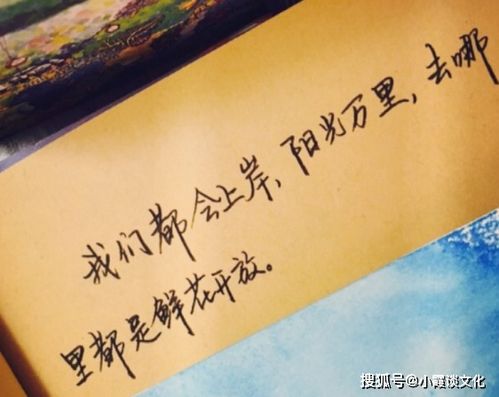 我们都会上岸，阳光万里，去哪
里都是鲜花开放。
搜狐号@小霞谈文化